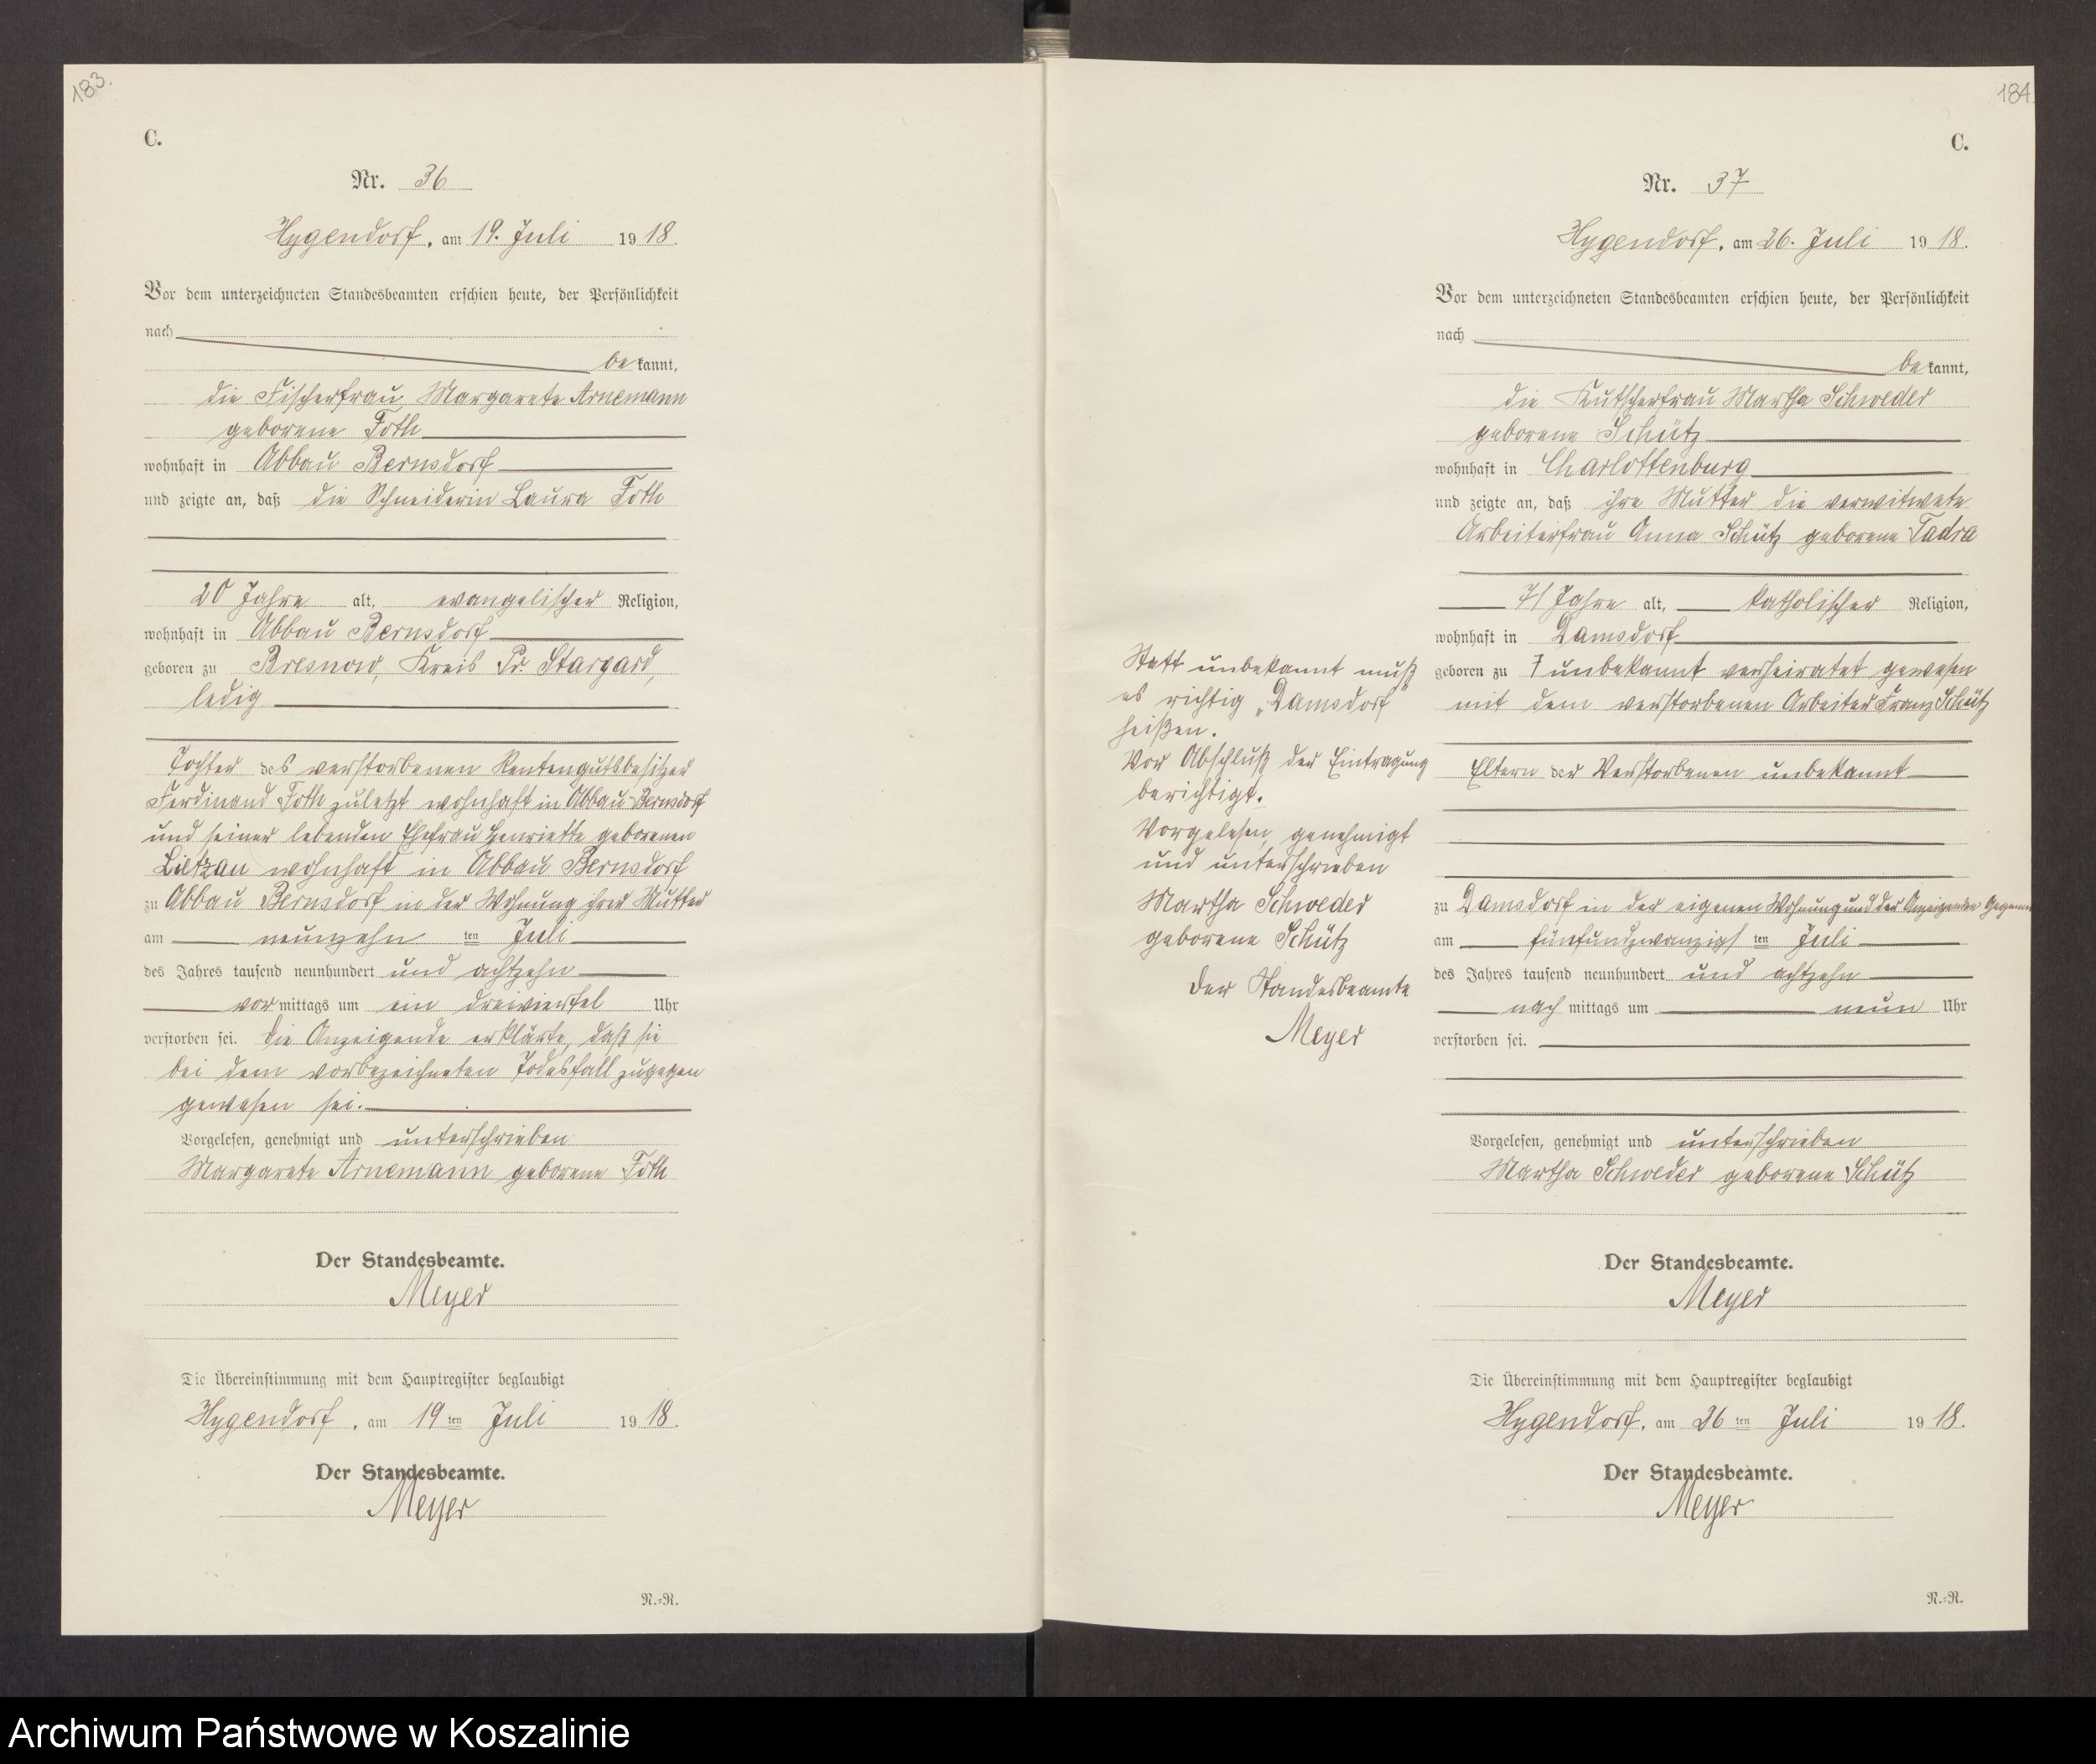 183.
C.
Nr. 36
Hygendorf, am 19. Juli 1918.
Vor dem unterzeichneten Standesbeamten erschien heute, der Persönlichkeit
nach
bekannt,
die Fischerfrau Margarete Arnemann
geborene Foth
wohnhaft in Abbau Bernsdorf
und zeigte an, daß die Schneiderin Laura Foth
20 Jahre alt, evangelischer Religion,
wohnhaft in Abbau Bernsdorf
geboren zu Bresnow, Kreis Pr. Stargard,
ledig
Tochter des verstorbenen Rentengutsbesitzer
Ferdinand Foth zuletzt wohnhaft in Abbau Bernsdorf
und seiner lebenden Ehefrau Henriette geborenen
Lietzau wohnhaft in Abbau Bernsdorf
zu Abbau Bernsdorf in der Wohnung ihrer Mutter
am neunzehn ten Juli
des Jahres tausend neunhundert und achtzehn
vormittags um ein dreiviertel Uhr
verstorben sei. Die Anzeigende erklärte, daß sie
bei dem vorbezeichneten Todesfall zugegen
gewesen sei.
Vorgelesen, genehmigt und unterschrieben
Margarete Arnemann geborene Foth
Der Standesbeamte.
Meyer
Die Übereinstimmung mit dem Hauptregister beglaubigt
Hygendorf, am 19ten Juli 1918.
Der Standesbeamte.
Meyer
N.=R.
184.
C.
Nr. 37
Hygendorf, am 26. Juli 1918.
Vor dem unterzeichneten Standesbeamten erschien heute, der Persönlichkeit
nach
bekannt,
die Kutscherfrau Martha Schweder
geborene Schütz
wohnhaft in Charlottenburg
und zeigte an, daß ihre Mutter die verwitwete
Arbeiterfrau Anna Schütz geborene Tadra
71 Jahre alt, katholischer Religion,
wohnhaft in Damsdorf
geboren zu unbekannt verheiratet gewesen
mit dem verstorbenen Arbeiter Franz Schütz
Eltern der Verstorbenen unbekannt
zu Damsdorf in der eigenen Wohnung und der Anzeigenden Gegenw
am fünfundzwanzigsten Juli
des Jahres tausend neunhundert und achtzehn
nachmittags um neun Uhr
verstorben sei.
Vorgelesen, genehmigt und unterschrieben
Martha Schweder geborene Schütz
Der Standesbeamte.
Meyer
Die Übereinstimmung mit dem Hauptregister beglaubigt
Hygendorf, am 26ten Juli 1918.
Der Standesbeamte.
Meyer
N.=R.
Statt unbekannt muß
es richtig „Damsdorf"
heißen.
Vor Abschluß der Eintragung
berichtigt.
Vorgelesen, genehmigt
und unterschrieben
Martha Schweder
geborene Schütz
Der Standesbeamte
Meyer
Archiwum Państwowe w Koszalinie